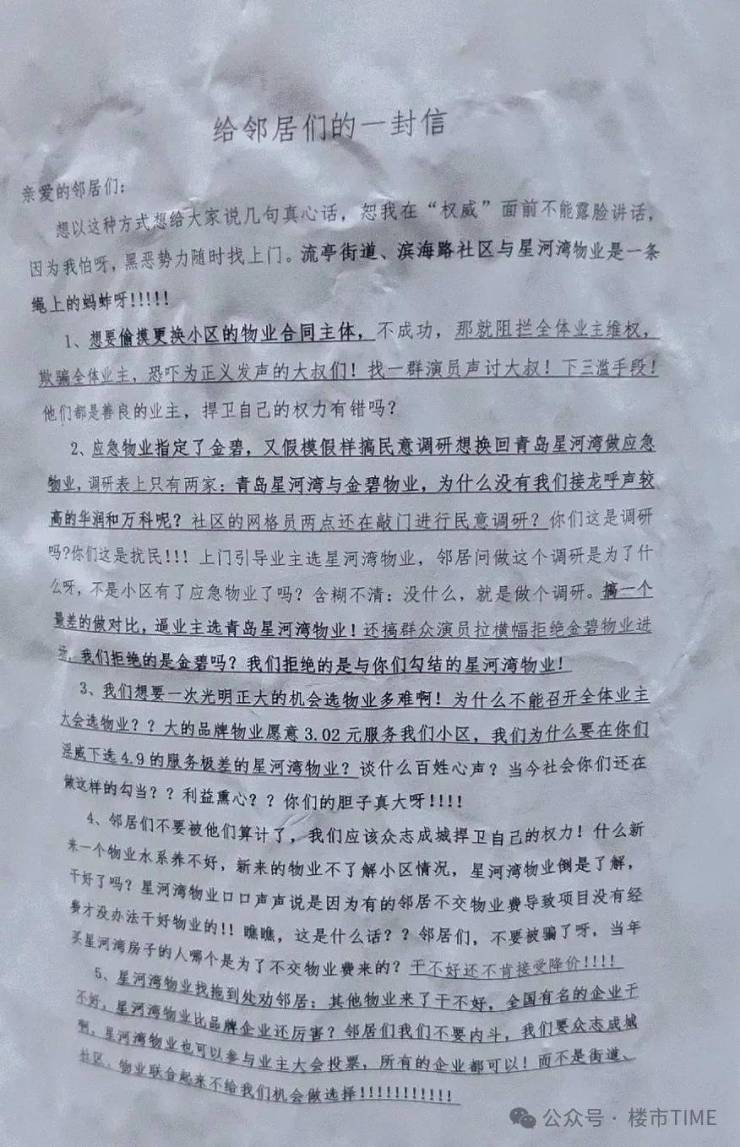 给邻居们的一封信
亲爱的邻居们：
想以这种方式想给大家说几句真心话，恕我在“权威”面前不能露脸讲话，
因为我怕呀，黑恶势力随时找上门。流亭街道、滨海路社区与星河湾物业是一条
绳上的蚂蚱呀!!!!!
1、想要偷摸更换小区的物业合同主体，不成功，那就阻拦全体业主维权，
欺骗全体业主，恐吓为正义发声的大叔们！找一群演员声讨大叔！下三滥手段！
他们都是善良的业主，捍卫自己的权力有错吗？
2、应急物业指定了金碧，又假模假样搞民意调研想换回青岛星河湾做应急
物业，调研表上只有两家：青岛星河湾与金碧物业，为什么没有我们接龙呼声较
高的华润和万科呢？社区的网格员两点还在敲门进行民意调研？你们这是调研
吗?你们这是扰民!!! 上门引导业主选星河湾物业，邻居问做这个调研是为了什
么呀，不是小区有了应急物业了吗？含糊不清：没什么，就是做个调研。搞一个
量差的做对比，逼业主选青岛星河湾物业！还搞群众演员拉横幅拒绝金碧物业进
场，我们拒绝的是金碧吗？我们拒绝的是与你们勾结的星河湾物业!
3、我们想要一次光明正大的机会选物业多难啊！为什么不能召开全体业主
大会选物业？？大的品牌物业愿意 3.02 元服务我们小区，我们为什么要在你们
淫威下选 4.9 的服务极差的星河湾物业？谈什么百姓心声？当今社会你们还在
做这样的勾当？？利益熏心？？你们的胆子真大呀!!!!
4、邻居们不要被他们算计了，我们应该众志成城捍卫自己的权力！什么新
来一个物业水系养不好，新来的物业不了解小区情况，星河湾物业倒是了解，
干好了吗？星河湾物业口口声声说是因为有的邻居不交物业费导致项目没有经
费才没办法干好物业的!! 瞧瞧，这是什么话？？邻居们，不要被骗了呀，当年
买星河湾房子的人哪个是为了不交物业费来的？干不好还不肯接受降价!!!!
5、星河湾物业找拖到处劝邻居：其他物业来了干不好，全国有名的企业干
不好，星河湾物业比品牌企业还厉害？邻居们我们不要内斗，我们要众志成城
啊，星河湾物业也可以参与业主大会投票，所有的企业都可以！而不是街道、
社区、物业联合起来不给我们机会做选择!!!!!!!!!!!
公众号·楼市TIME